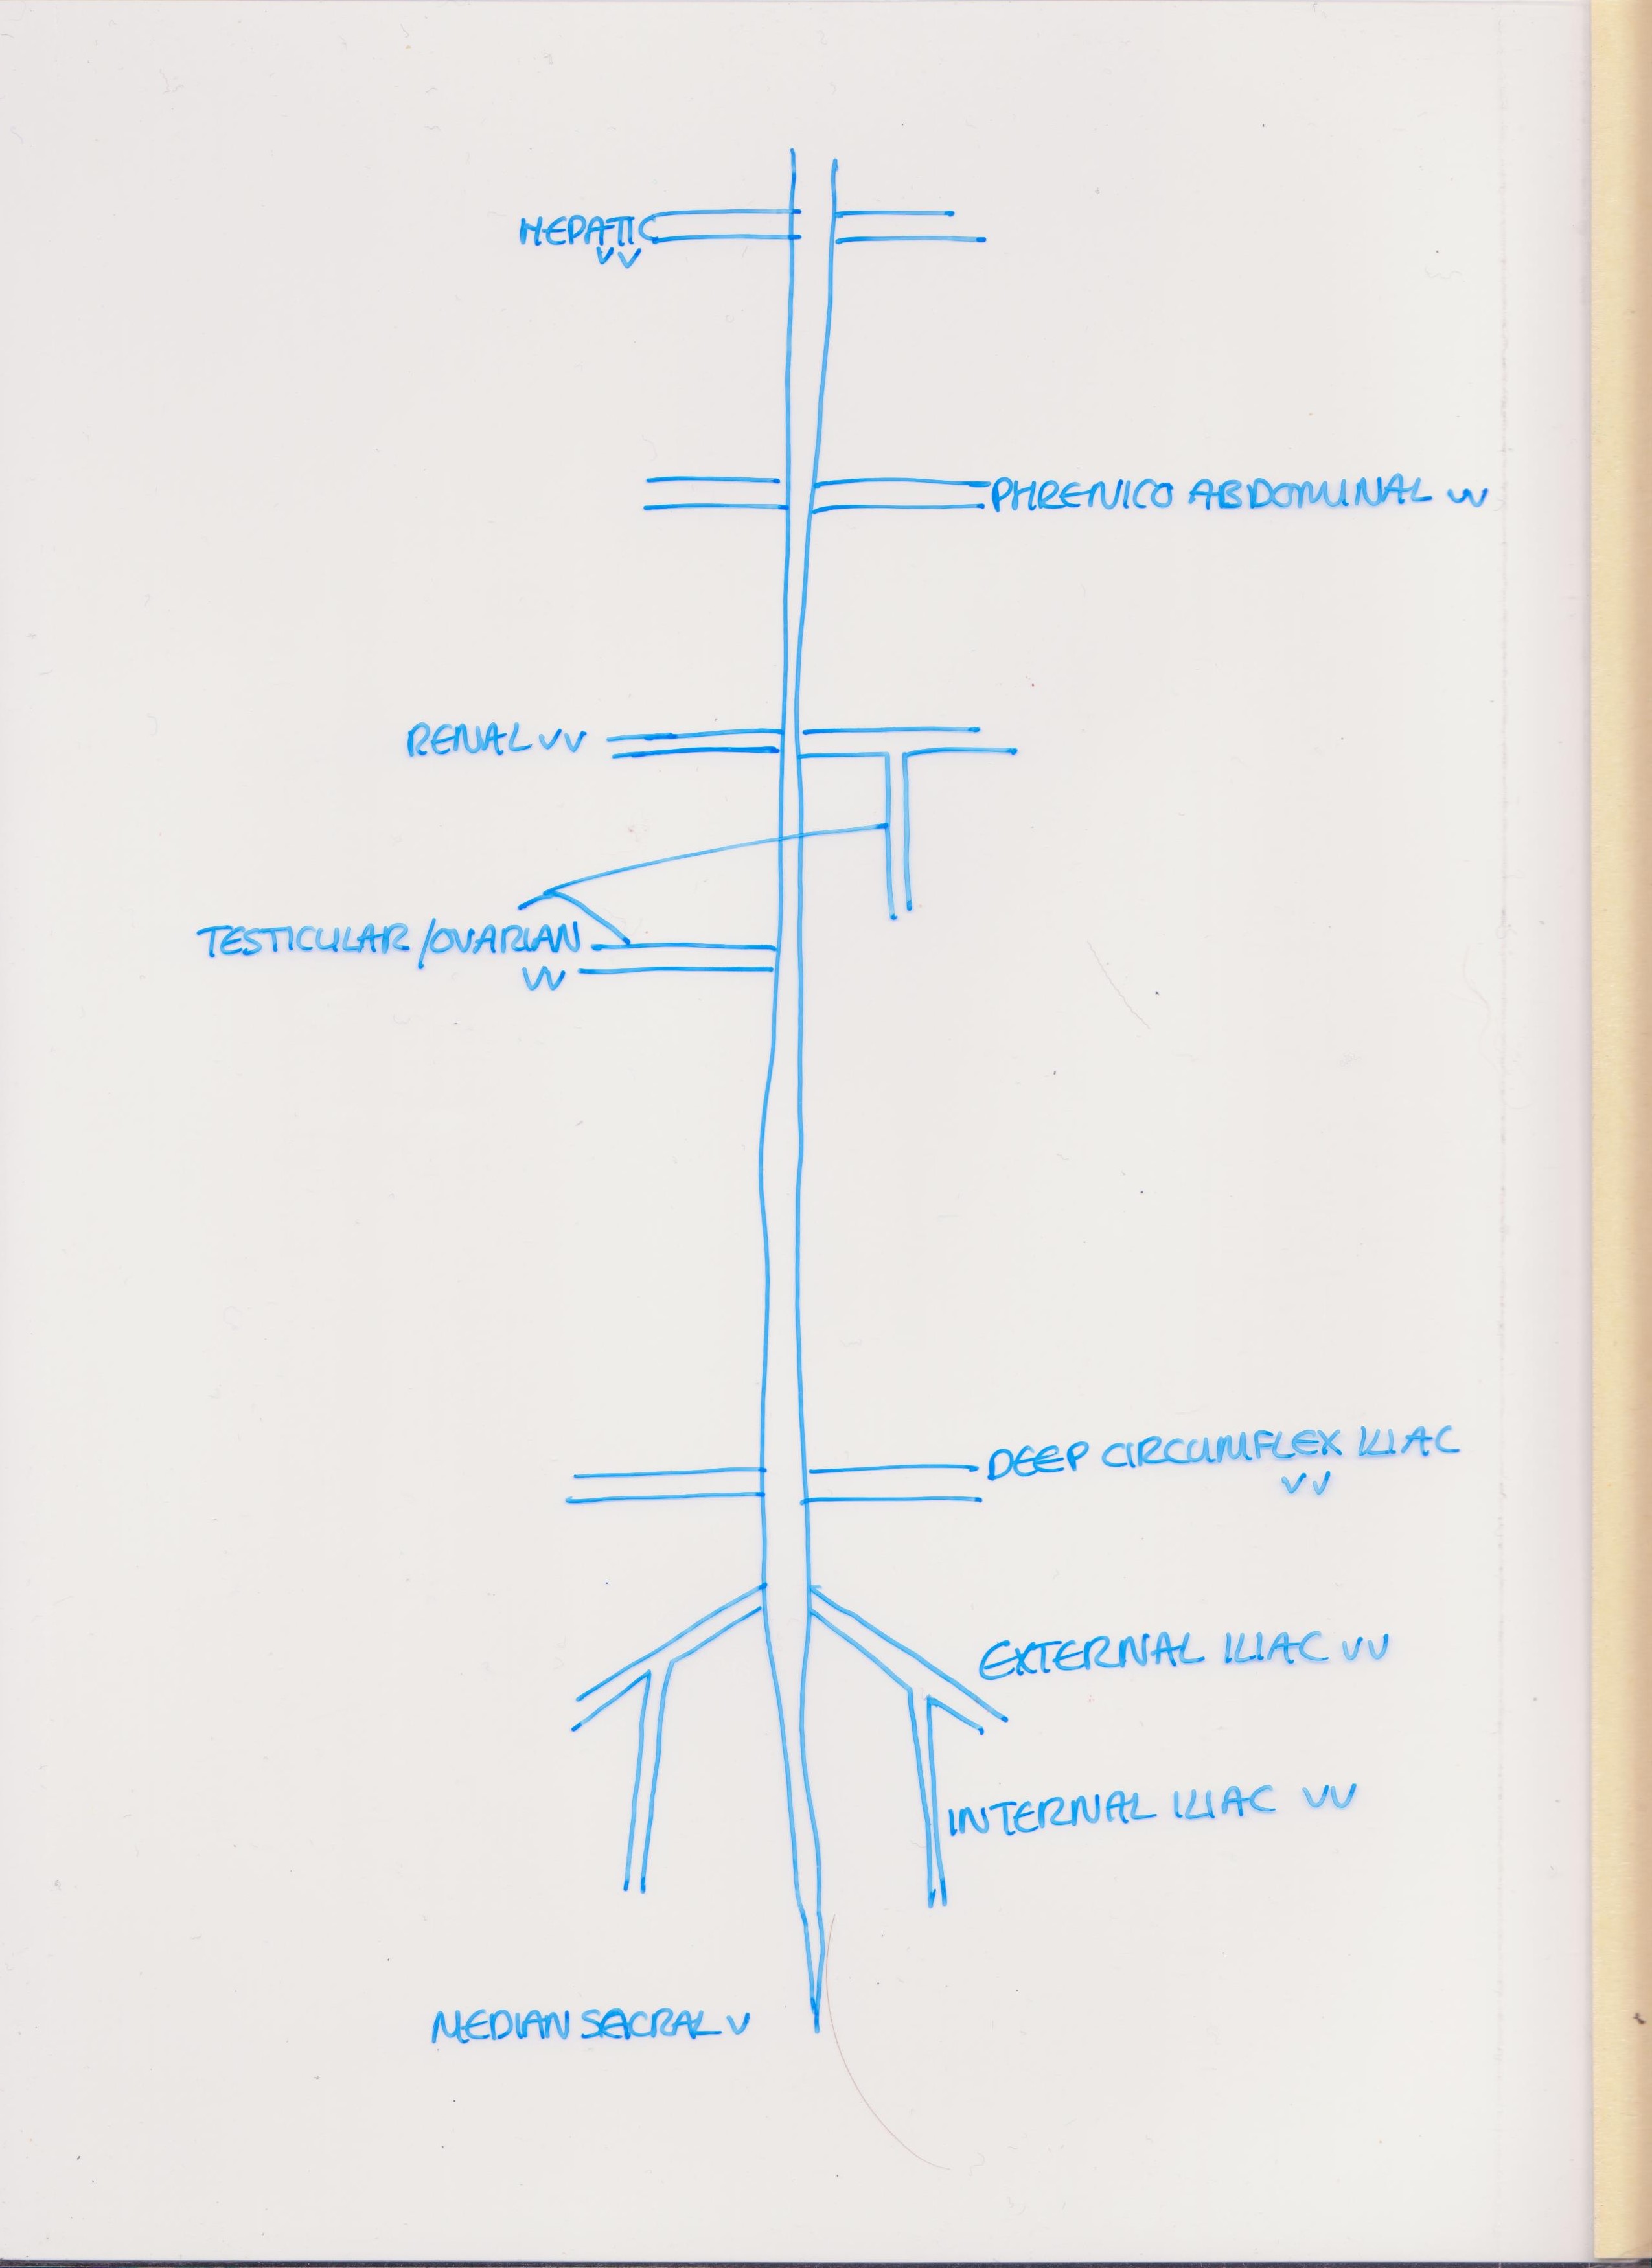 HEPATIC
VV
PHRENICO ABDOMINAL VV
RENAL VV
TESTICULAR/OVARIAN
VV
DEEP CIRCUMFLEX ILIAC
VV
EXTERNAL ILIAC VV
INTERNAL ILIAC VV
MEDIAN SACRAL V